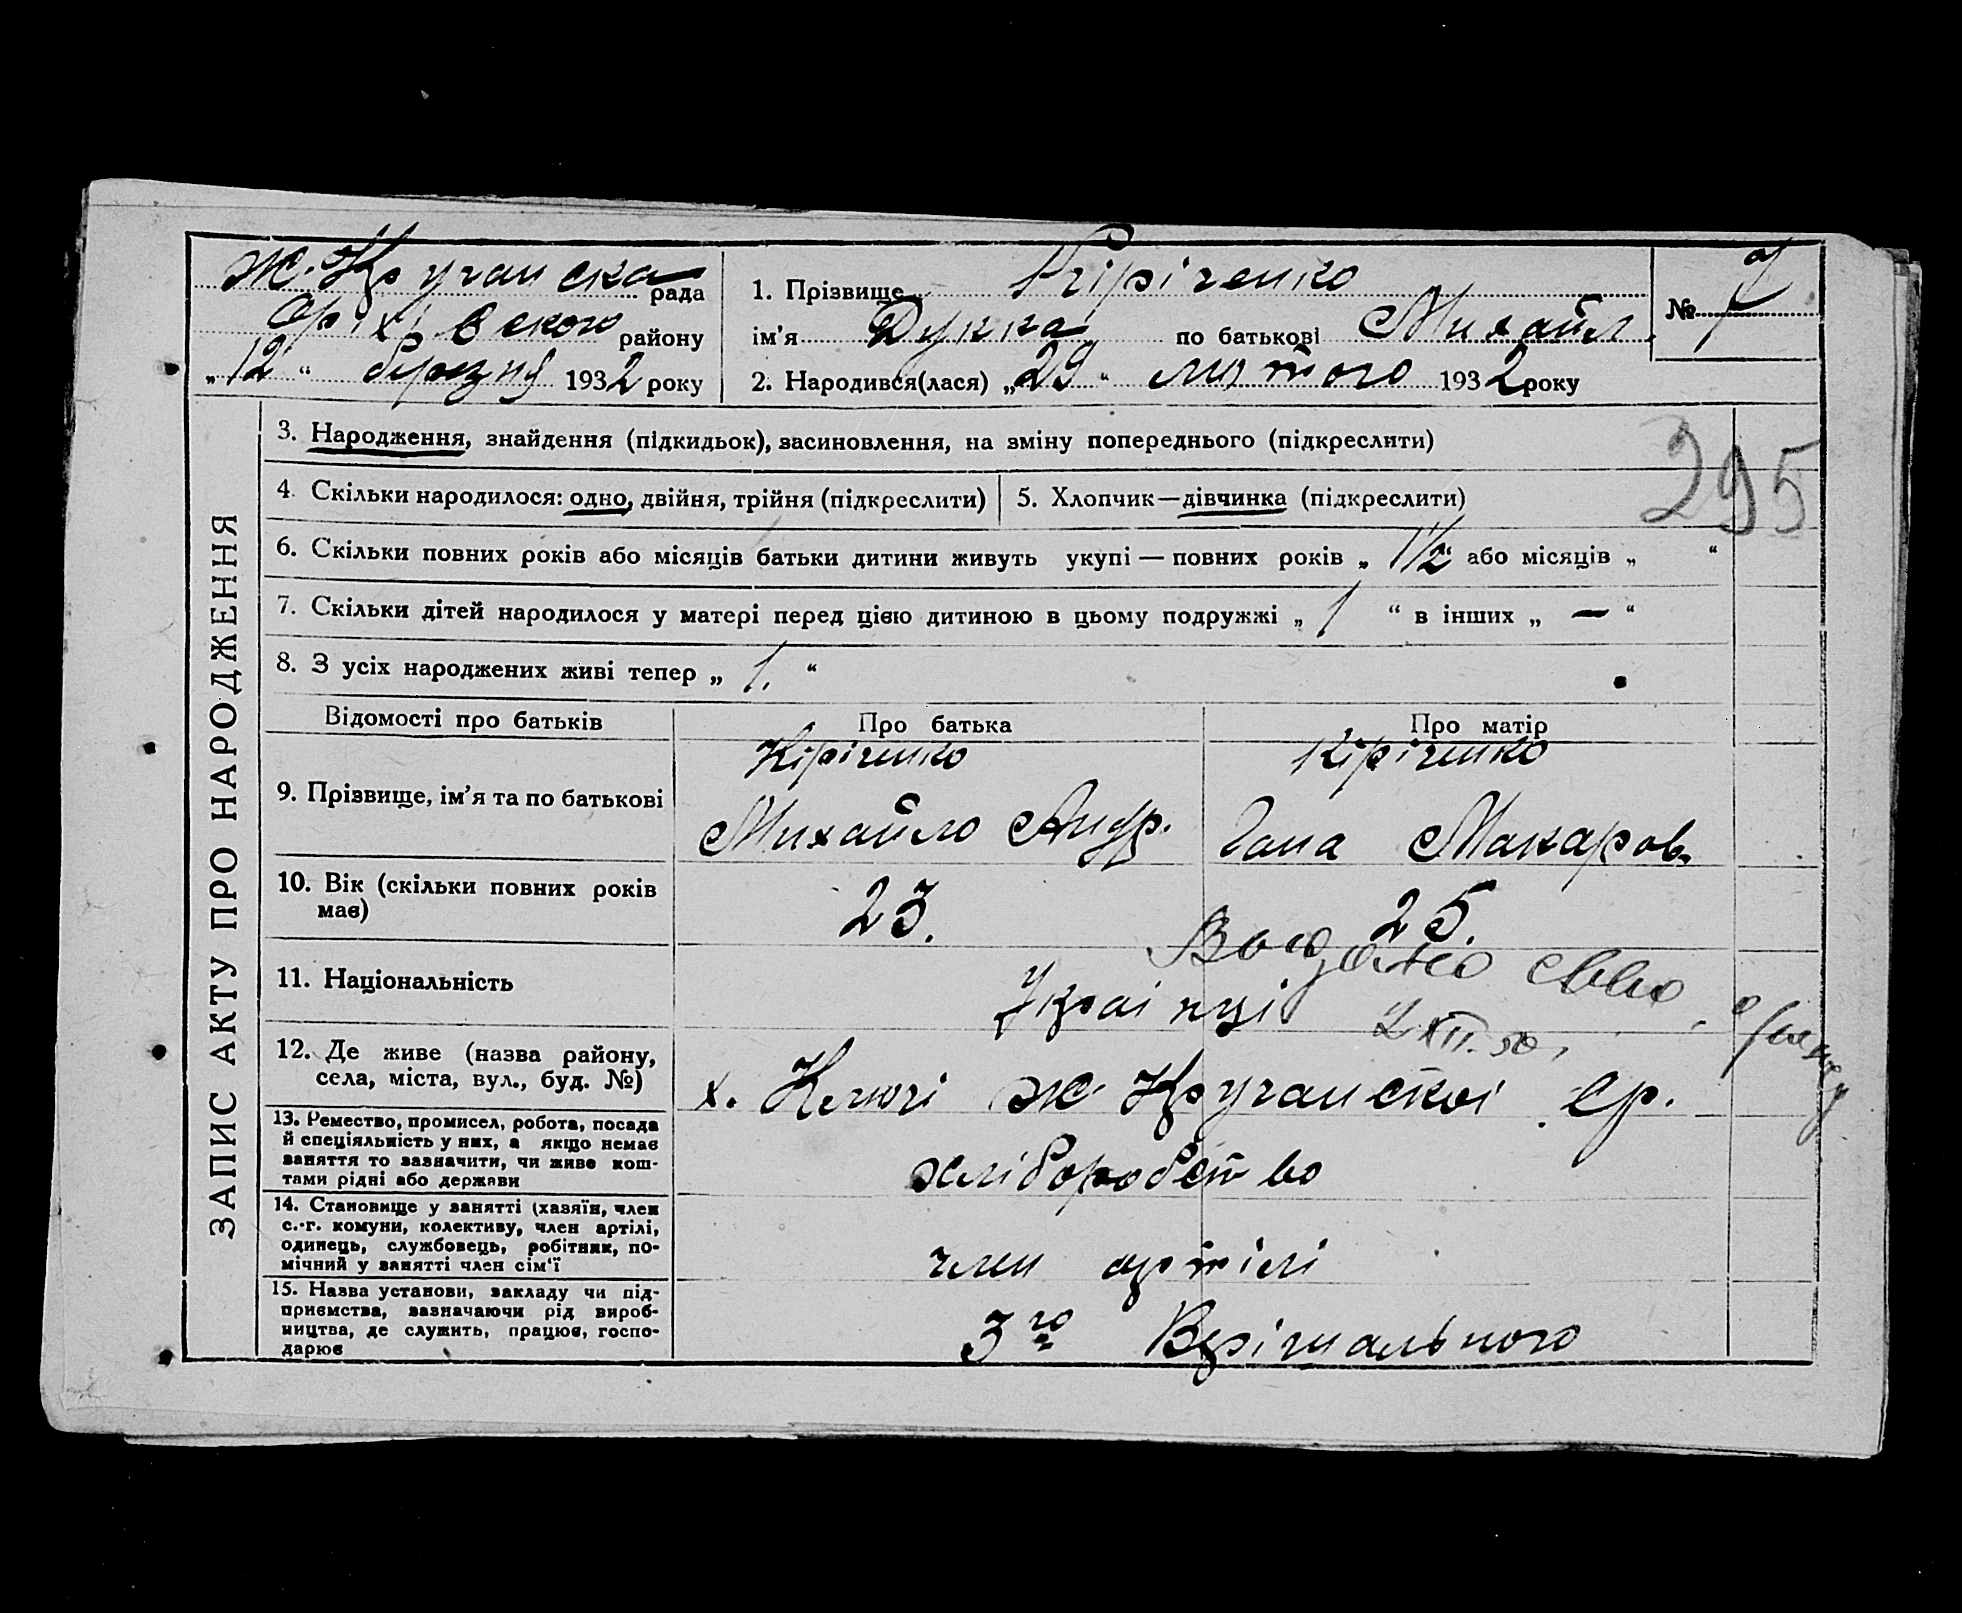 Ж. Кругланска рада
Оріхівського району
„12“ березня 1932 року
1. Прізвище Кіріченко
ім'я Дунка по батькові Михайл.
№ 7
2. Народився(лася) „29“ лютого 1932 року
295
ЗАПИС АКТУ ПРО НАРОДЖЕННЯ
3. Народження, знайдення (підкидьок), засиновлення, на зміну попереднього (підкреслити)
4. Скільки народилося: одно, двійня, трійня (підкреслити)
5. Хлопчик—дівчинка (підкреслити)
6. Скільки повних років або місяців батьки дитини живуть укупі — повних років „1½“ або місяців „ “
7. Скільки дітей народилося у матері перед цією дитиною в цьому подружжі „1“ в інших „—“
8. З усіх народжених живі тепер „1.“
Відомості про батьків Про батька Про матір
9. Прізвище, ім'я та по батькові
Кіріченко Кіріченко
Михайло Андр. Гана Макаров.
10. Вік (скільки повних років має)
23. 25.
11. Національність
Українці
Видано свво
2 XII. 50.
12. Де живе (назва району,
села, міста, вул., буд. №)
х. Ключі Ж ср.
13. Ремество, промисел, робота, посада
й спеціяльність у них, а якщо немає
заняття то зазначити, чи живе кош-
тами рідні або держави
хліборобство
14. Становище у занятті (хазяїн, член
с.-г. комуни, колективу, член артілі,
одинець, службовець, робітник, по-
мічний у занятті член сім'ї
член артілі
15. Назва установи, закладу чи під-
приємства, зазначаючи рід вироб-
ництва, де служить, працює, госпо-
дарює
3го Вирішального